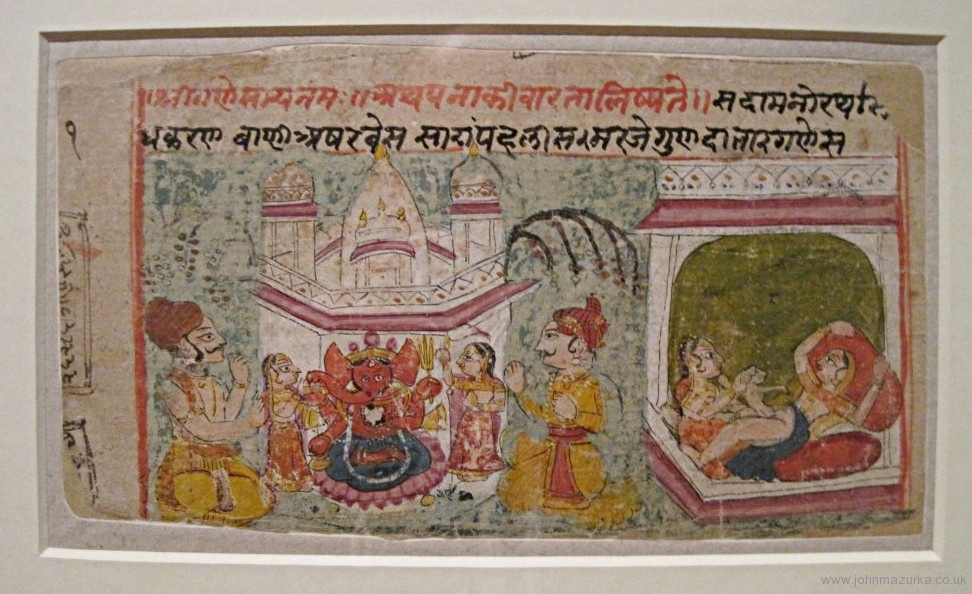 ॥श्रीगणेसायनमः॥अथपनाकीवारतालिष्यते॥सदामनोरथसि
धकरण बाणीअषरवेस सारांपहलीसमरजेगुणदातारगणेस
१
www.johnmazurka.co.uk